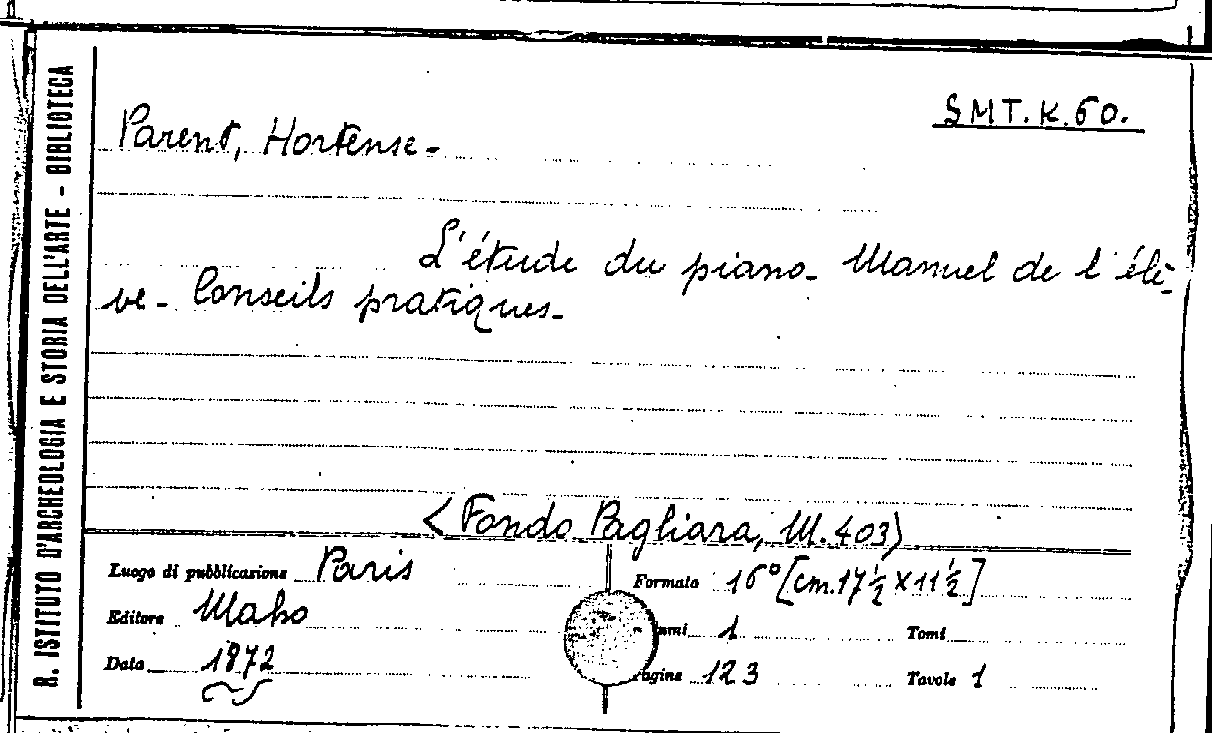 R. ISTITUTO D'ARCHEOLOGIA E STORIA DELL'ARTE - BIBLIOTECA
SMT. K. 60.
Parent, Hortense -
L'étude du piano - Manuel de l'élè-
ve - Conseils pratiques -
<Fondo Pagliara, M. 403>
Luogo di pubblicazione Paris
Formato 16° [cm. 17 ½ x 11 ½]
Editore Maho
umi 1 Tomi
Data 1872
Pagine 123 Tavole 1